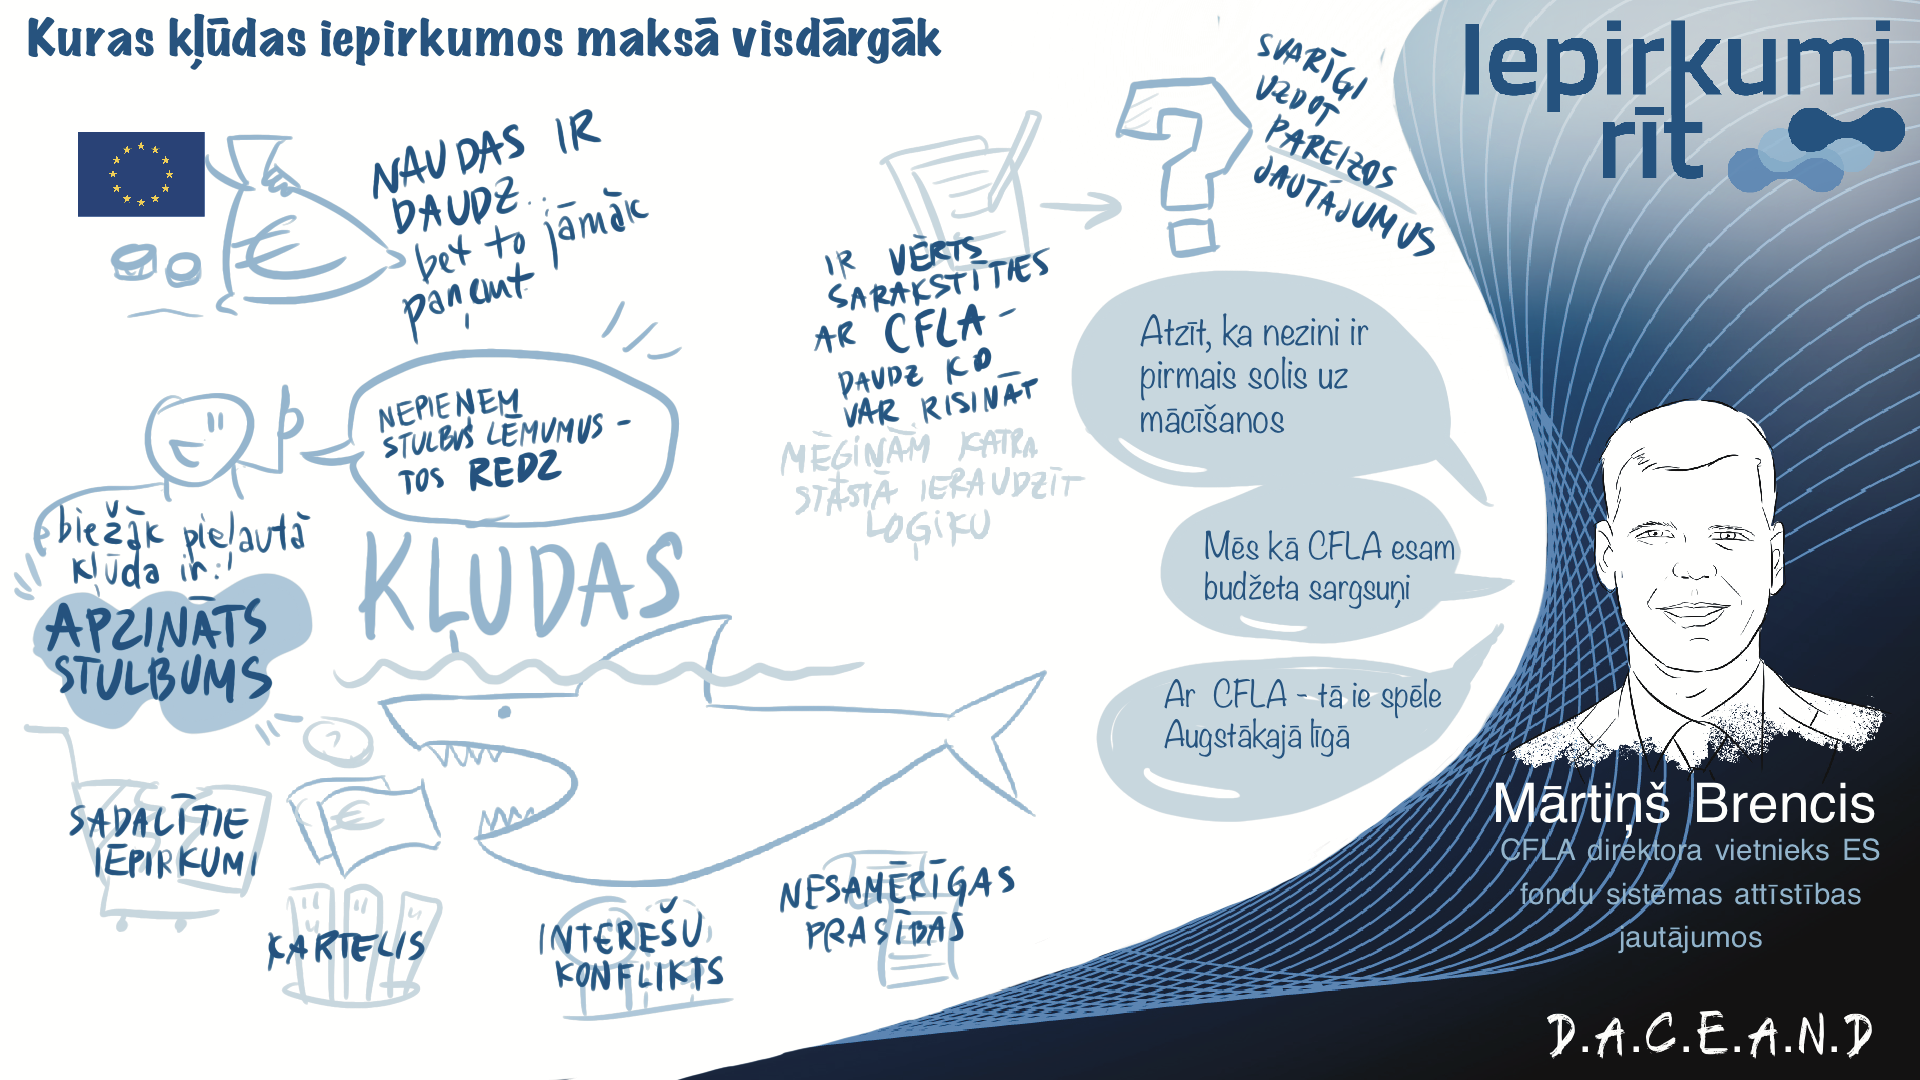 Kuras kļūdas iepirkumos maksā visdārgāk
NAUDAS IR
DAUDZ...
bet to jāmāk
paņemt
NEPIEŅEM
STULBUS LĒMUMUS -
TOS REDZ
biežāk pieļautā
kļūda ir:
APZINĀTS
STULBUMS
KĻUDAS
SADALĪTIE
IEPIRKUMI
KARTELIS
INTEREŠU
KONFLIKTS
NESAMĒRĪGAS
PRASĪBAS
IR VĒRTS
SARAKSTĪTIES
AR CFLA -
DAUDZ KO
VAR RISINĀT
MĒĢINĀM KATRĀ
STĀSTĀ IERAUDZĪT
LOĢIKU
SVARĪGI
UZDOT
PAREIZOS
JAUTĀJUMUS
Atzīt, ka nezini ir
pirmais solis uz
mācīšanos
Mēs kā CFLA esam
budžeta sargsuņi
Ar CFLA - tā ie spēle
Augstākajā līgā
Iepirkumi
rīt
Mārtiņš Brencis
CFLA direktora vietnieks ES
fondu sistēmas attīstības
jautājumos
D.A.C.E.A.N.D